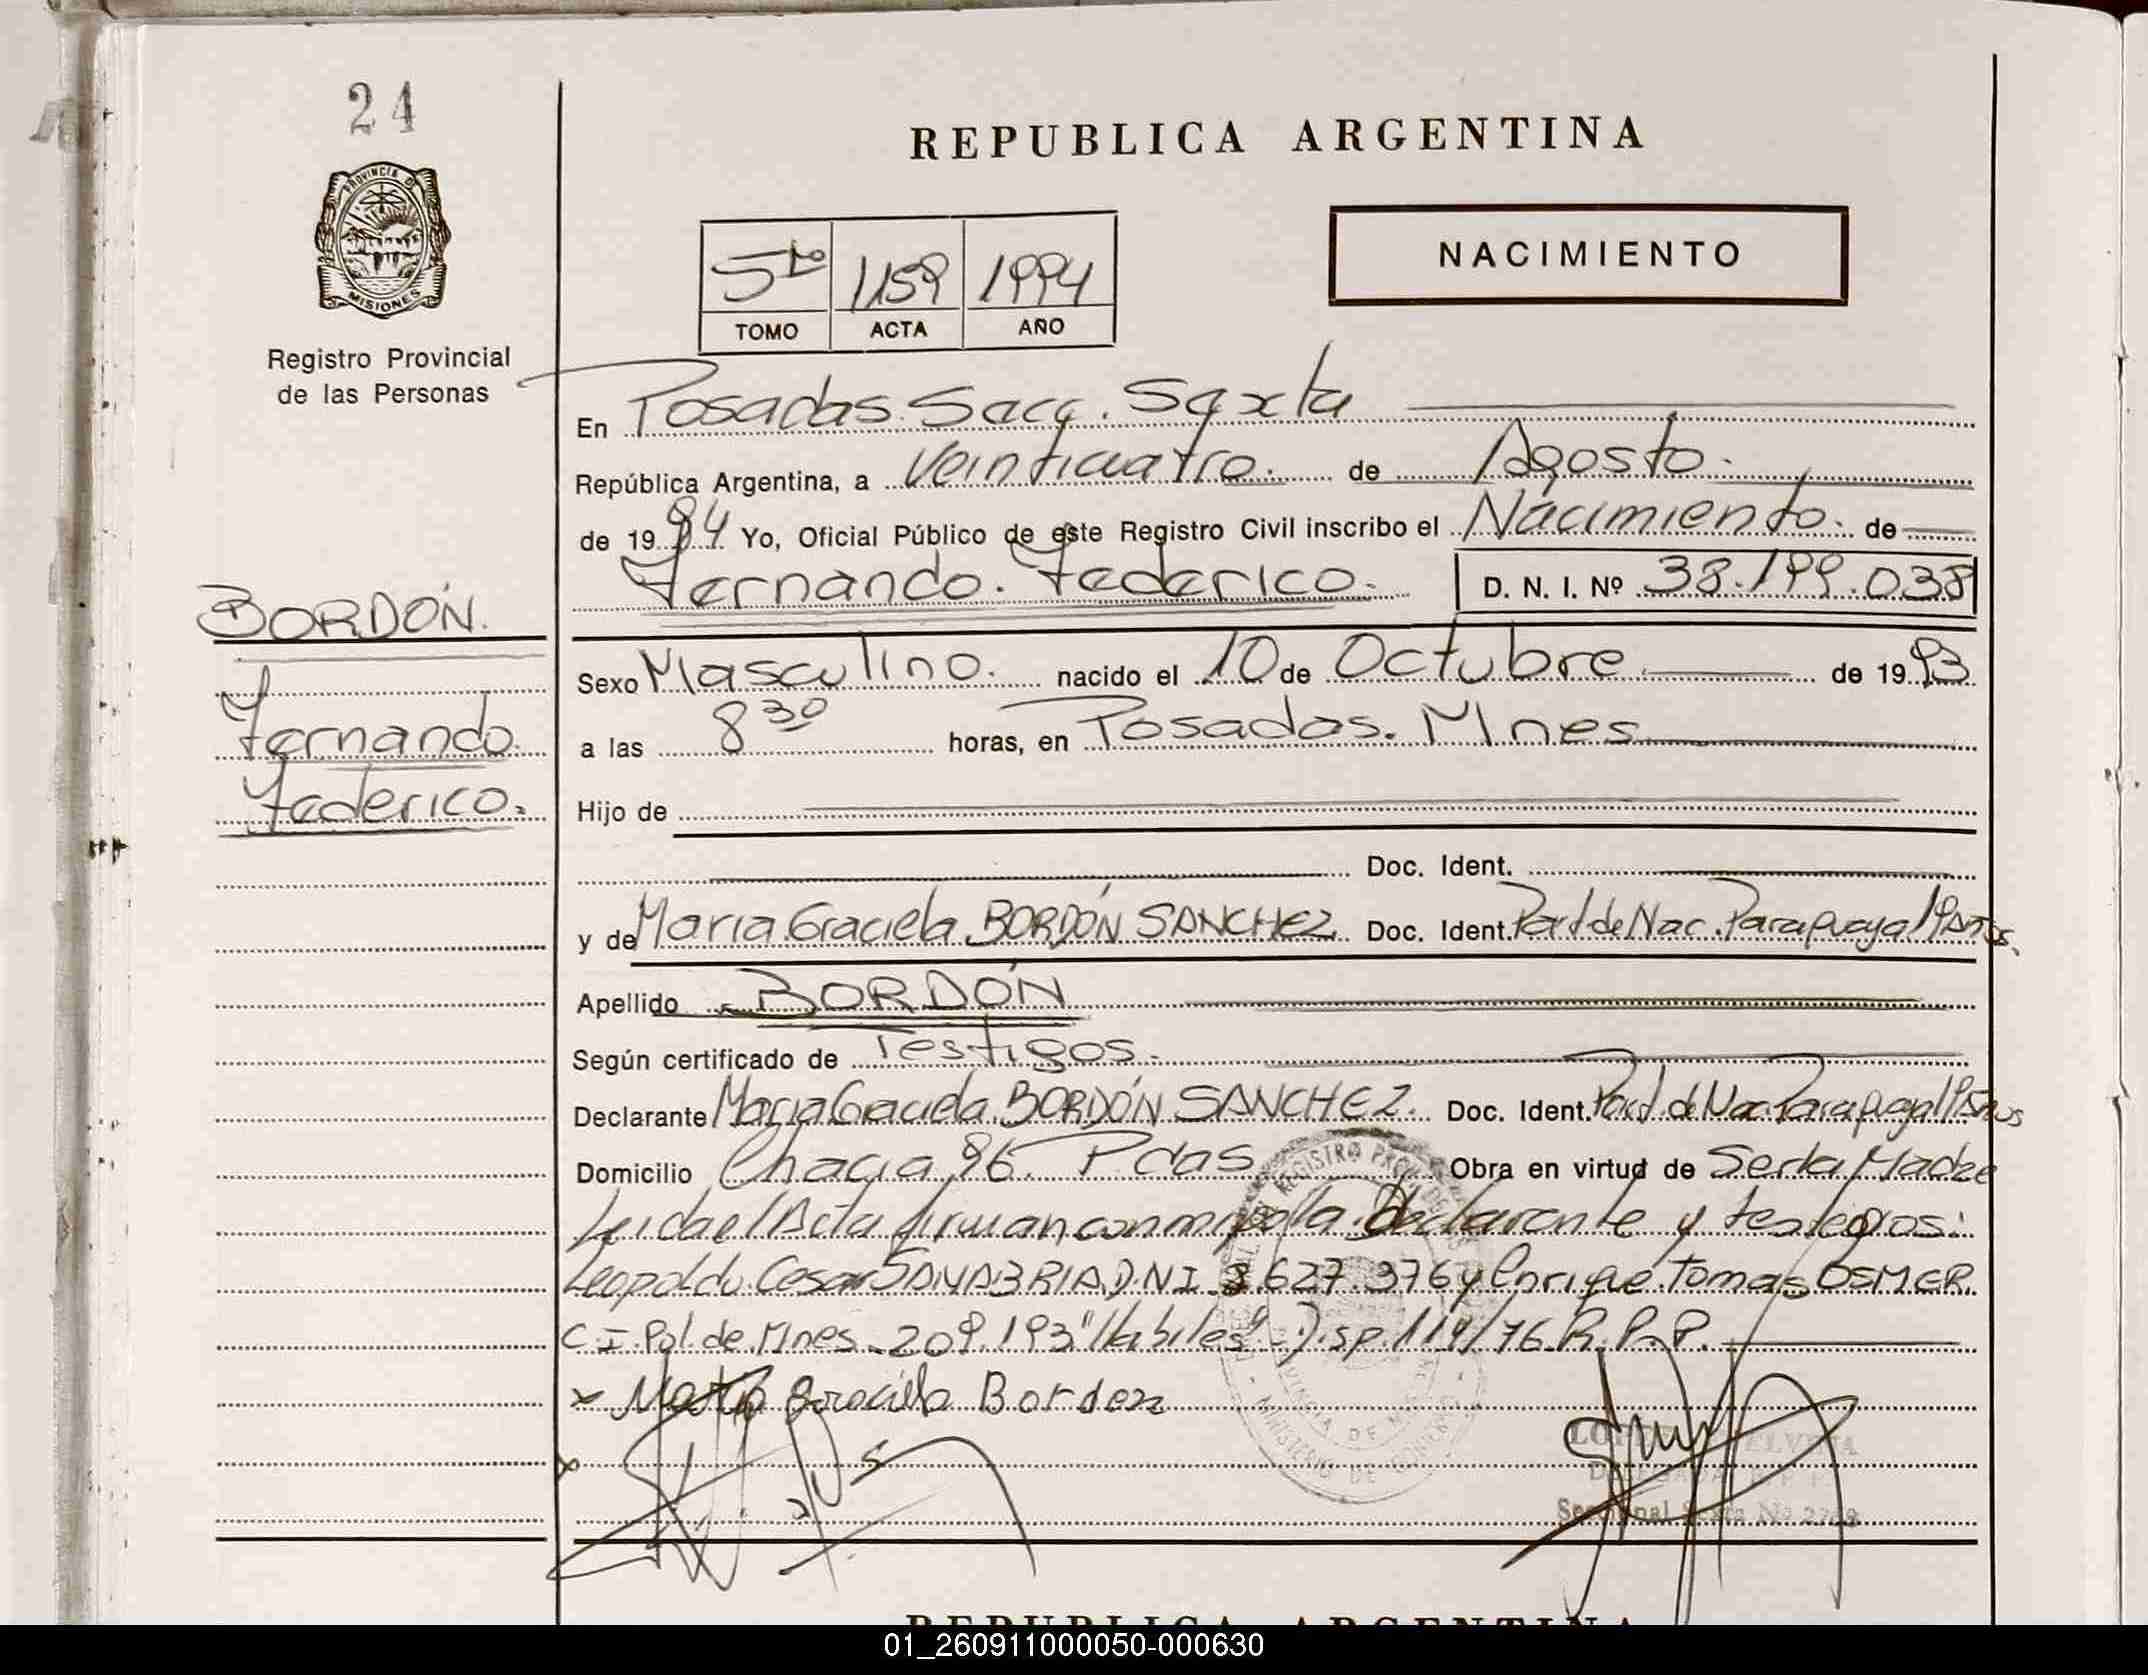 24
REPUBLICA ARGENTINA
PROVINCIA DE
MISIONES
Registro Provincial
de las Personas
NACIMIENTO
5to 1159 1994
TOMO ACTA AÑO
En Posadas. Secc. Sexta
República Argentina, a Veinticuatro. de Agosto.
de 1994 Yo, Oficial Público de este Registro Civil inscribo el Nacimiento. de
Fernando. Federico. D. N. I. Nº 38.199.038
BORDÓN.
Fernando.
Federico.
Sexo Masculino. nacido el 10 de Octubre de 1993
a las 8 30 horas, en Posadas. Mnes
Hijo de
Doc. Ident.
y de Maria Graciela BORDÓN SANCHEZ Doc. Ident. Part de Nac. Paraguaya 19 Años.
Apellido BORDÓN
Según certificado de Testigos.
Declarante Maria Graciela BORDÓN SANCHEZ. Doc. Ident. Part. de Nac. Paraguaya 19 Años
Domicilio Chacra 96. Pdas Obra en virtud de Ser la Madre
Leida el Acta firman conmigo la Declarante y testigos:
Leopoldo Cesar SANABRIA D.N.I 8.627.376 y Enrique Tomas OSMER
C.I. Pol. de Mnes. 209.193 "Habiles" Disp. 114/76 R.P.P.
x Maria Graciela Bordon
x
REGISTRO
MINISTERIO DE GOBIERNO
Seccional Sexta Nº
REPUBLICA ARGENTINA
01_260911000050-000630